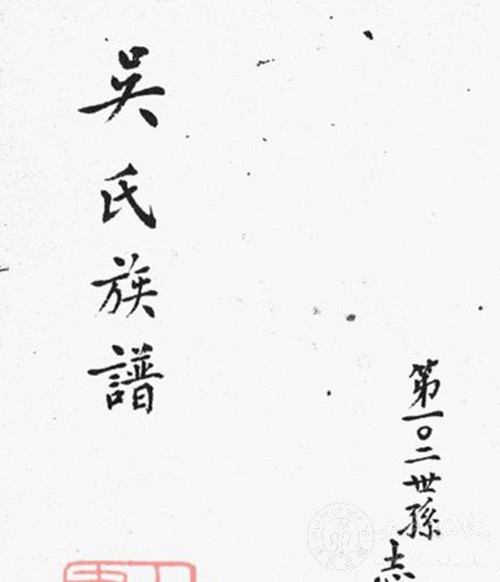 第一〇二世孫志
吳氏族譜